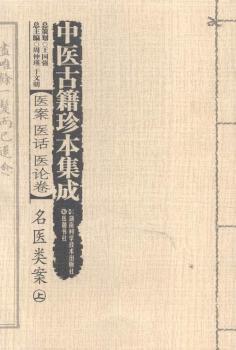 中医古籍珍本集成
总策划◎王国强
总主编◎周仲瑛 于文明
【医案医话医论卷】
名医类案 上
湖南科学技术出版社
岳麓书社
尽唯余一发而已遂愈